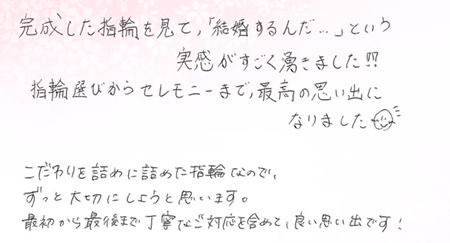 完成した指輪を見て、「結婚するんだ…」という
実感がすごく湧きました!!
指輪選びからセレモニーまで、最高の思い出に
なりました
こだわりを詰めに詰めた指輪なので、
ずっと大切にしようと思います。
最初から最後まで丁寧なご対応を含めて、良い思い出です!